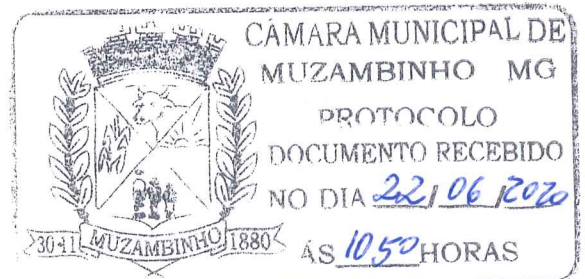 CÂMARA MUNICIPAL DE
MUZAMBINHO MG
PROTOCOLO
DOCUMENTO RECEBIDO
NO DIA 22/06/2020
ÀS 10:50 HORAS
30-11 MUZAMBINHO 1880